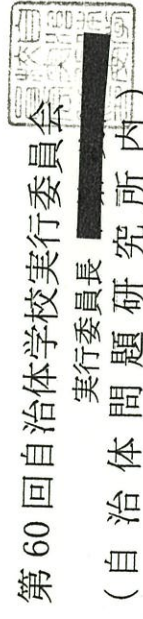 第 60 回自治体学校実行委員会
実行委員長
（自 治 体 問 題 研 究 所 内）